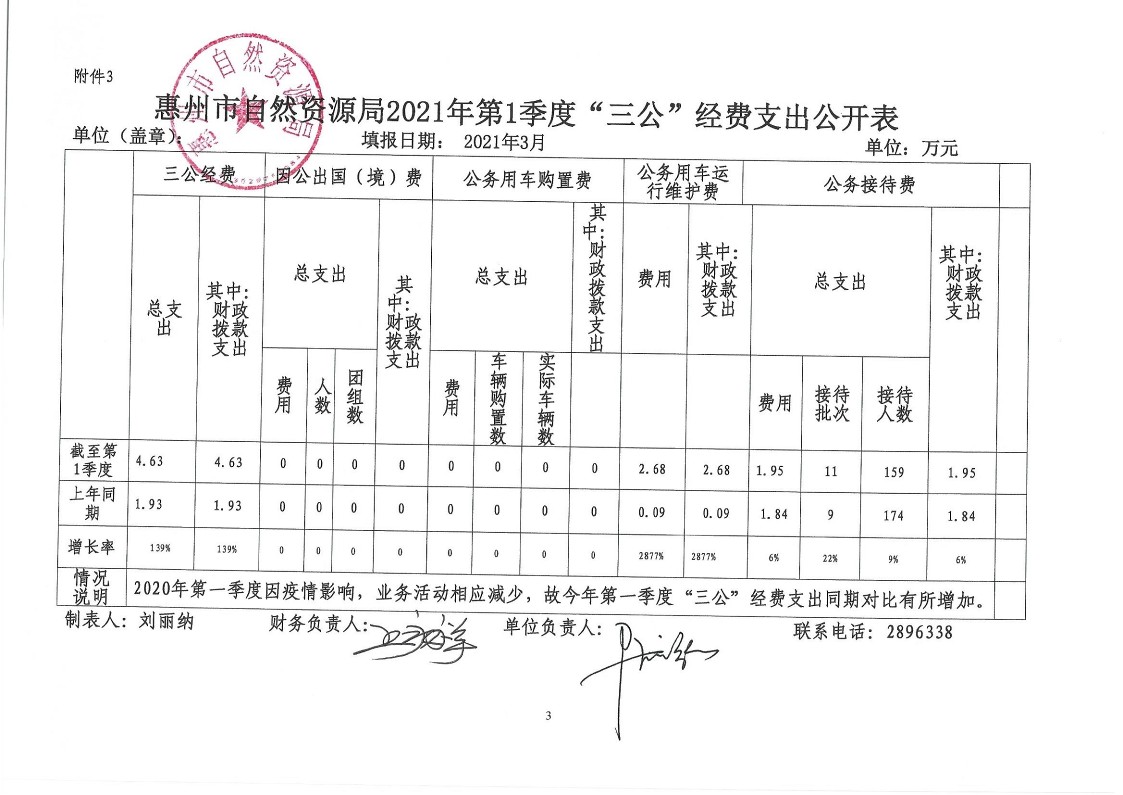 附件3
惠州市自然资源局
惠州市自然资源局2021年第1季度“三公”经费支出公开表
单位（盖章）： 填报日期： 2021年3月 单位：万元
三公经费 因公出国（境）费 公务用车购置费 公务用车运行维护费 公务接待费
总支出 其中：财政拨款支出 总支出 其中：财政拨款支出 总支出 其中：财政拨款支出 费用 其中：财政拨款支出 总支出 其中：财政拨款支出
费用 人数 团组数 费用 车辆购置数 实际车辆数 费用 接待批次 接待人数
截至第1季度 4.63 4.63 0 0 0 0 0 0 0 0 2.68 2.68 1.95 11 159 1.95
上年同期 1.93 1.93 0 0 0 0 0 0 0 0 0.09 0.09 1.84 9 174 1.84
增长率 139% 139% 0 0 0 0 0 0 0 0 2877% 2877% 6% 22% 9% 6%
情况说明 2020年第一季度因疫情影响，业务活动相应减少，故今年第一季度“三公”经费支出同期对比有所增加。
制表人：刘丽纳 财务负责人： 单位负责人： 联系电话：2896338
3